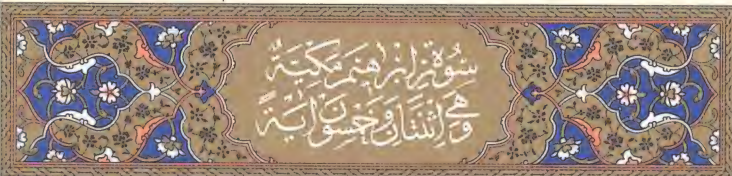 سُورَةُ إِبْرَاهِيمَ مَكِّيَّةٌ
وَهِيَ اثْنَتَانِ وَخَمْسُونَ آيَةً